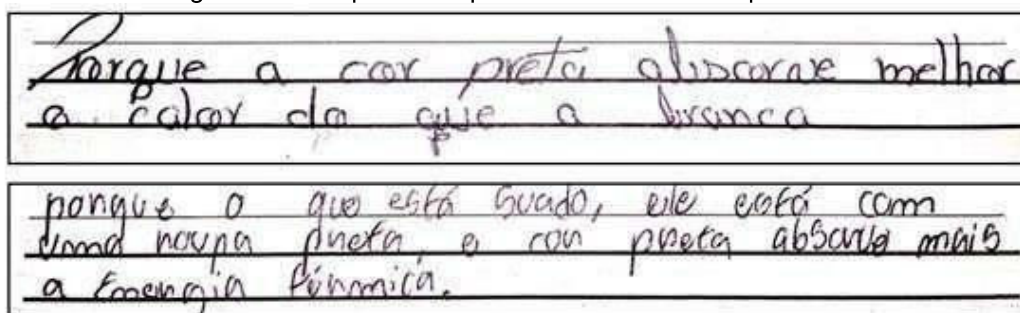 Porque a cor preta abscorve melhor
o calor do que a branca
porque o que está suado, ele está com
uma roupa preta, e cor preta absorve mais
a Energia térmica.